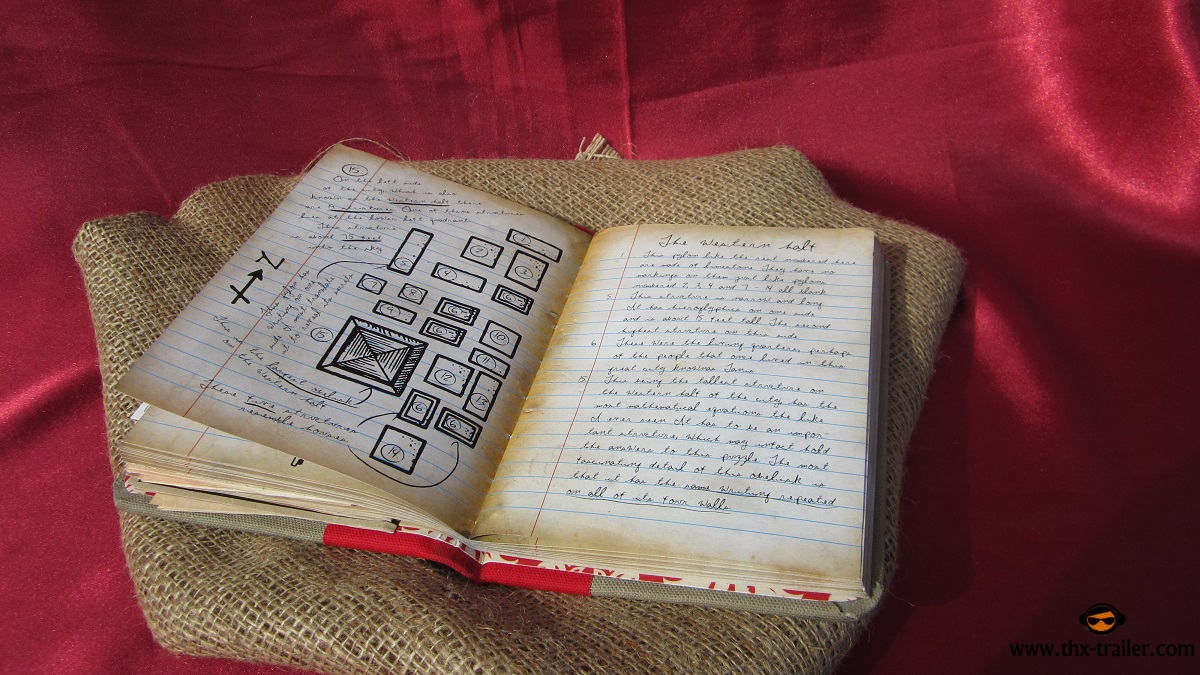 15
On the left side
of the city which is also
known as the Western half there
are
structures One of these structures
here at the lower left quadrant
This structure
is about 75 feet
into the sky
N
This pylon has
writing on one
side
I
to repeat
15
This is the largest obelisk
on the Western half
These five structures
resemble houses
1
2
3
4
5
6
7
8
9
10
11
12
13
6
6
14
The Western half
1. This pylon like the rest numbered here
are made of limestone They have no
markings on them just like pylons
numbered 2, 3, 4 and 7 - 14 all blank
5. This structure is narrow and long
It has hieroglyphics on one side
and is about 15 feet tall The second
highest structure on this side
6. These were the living quarters perhaps
of the people that once lived in this
great city
Tanis
15. This being the tallest structure on
the Western half of the city has the
most mathematical equations the like
I ever seen It has to be an impor-
tant structure, which may intact hold
the answers to this puzzle The most
fascinating detail of this obelisk is
that it has the same writing repeated
on all of its four walls
www.thx-trailer.com